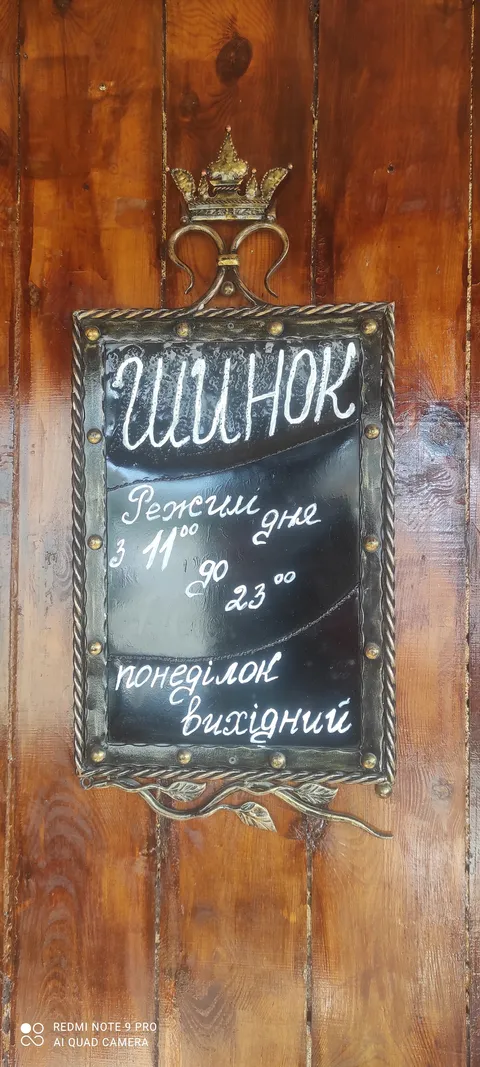 ШИНОК
Режим дня
з 11⁰⁰
до
23⁰⁰
понеділок
вихідний
REDMI NOTE 9 PRO
AI QUAD CAMERA